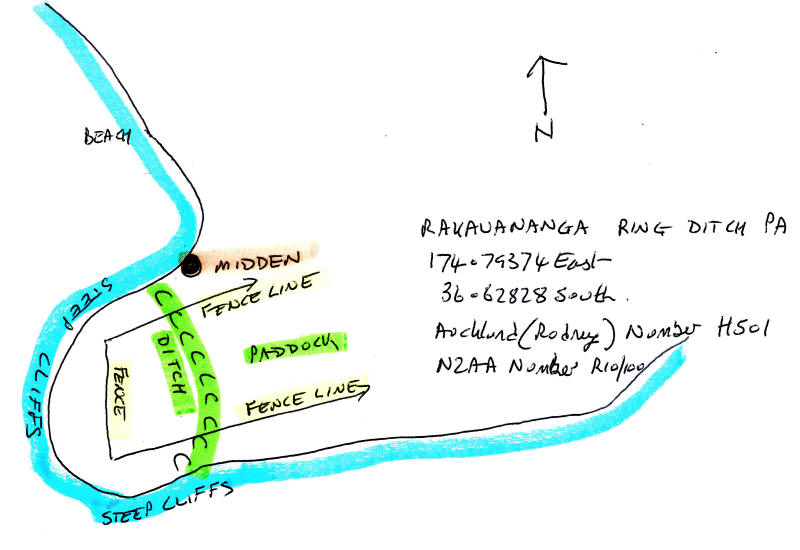 N
BEACH
RAKAUANANGA RING DITCH PA
174.79374 East
36.62828 South.
Auckland (Rodney) Number H501
NZAA Number R10/100
MIDDEN
FENCE LINE
STEEP CLIFFS
DITCH
PADDOCK
FENCE
FENCE LINE
STEEP CLIFFS